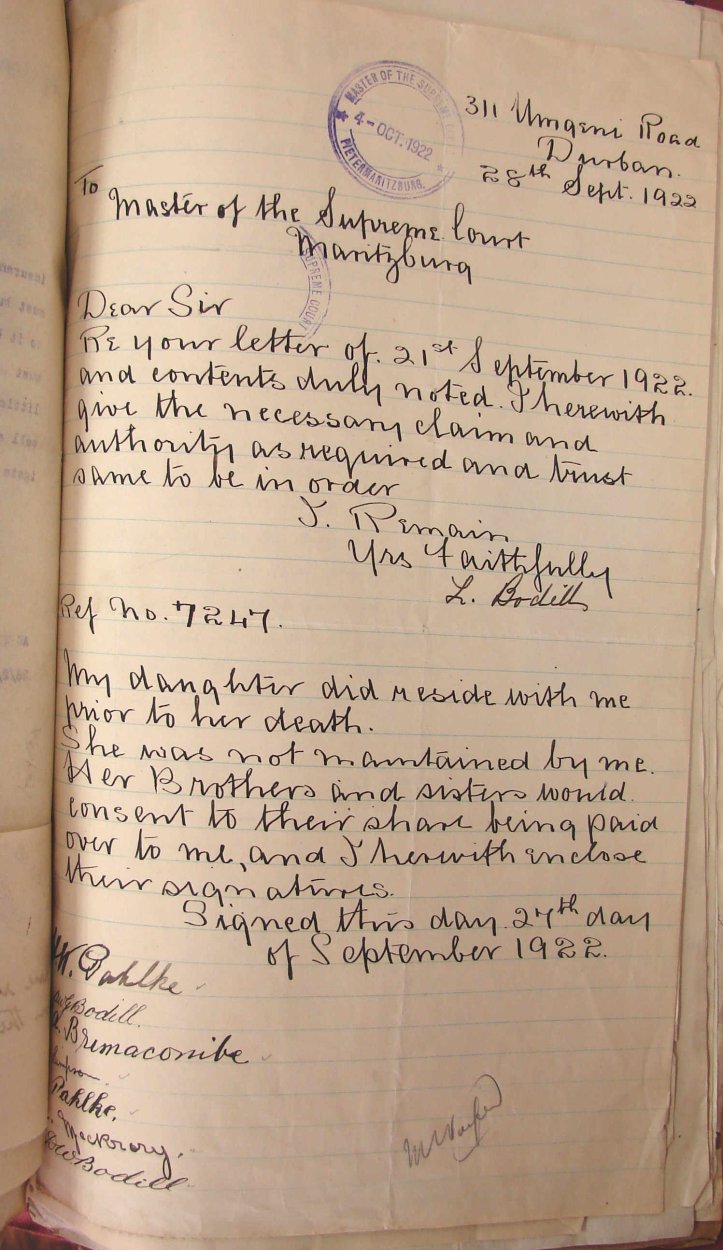 MASTER OF THE SUPREME
4-OCT.1922
PIETERMARITZBURG.
311 Umgeni Road
Durban.
28th Sept. 1922
To
Master of the Supreme Court
Maritzburg
SUPREME COURT
Dear Sir
Re your letter of. 21st September 1922.
and contents duly noted. I herewith
give the necessary claim and
authority as required and trust
same to be in order
I. Remain
Yrs Faithfully
L. Bodill
Ref No. 7247.
My daughter did reside with me
prior to her death.
She was not maintained by me.
Her Brothers and sisters would.
consent to their share being paid
over to me, and I herewith enclose
their signatures.
Signed this day. 27th day
of September 1922.
Pahlke
Bodill.
Bremacombe
Pahlke.
Bodill